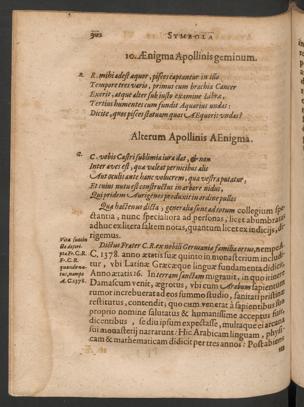 302 SYMBOLA
10. Ænigma Apollinis geminum.
2. R. mihi adest æquor, pisces captantur in illo
Tempore tres vario, primus cum brachia Cancer
Exerit, atque alter sub iusto examine Libra,
Tertius humentes cum fundit Aquarius undas:
Dicite, qnes pisces statuam quot Æquoris undas?
Alterum Apollinis AEnigma.
C. vobis Castri sublimia iura dat, & non
Inter aves est, qua valeat pernicibus alis
Aut oculis ante hanc volucrem, qua vestra putatur,
Et cuius nutu est constructus in arbore nidus,
Qui pridem Aurigenes produxit in ordine pullos
Qua hactenus dicta, generalia sunt ad totum collegium spe-
ctantia, nunc specialiora ad personas, licet abumbratas
adhuc exlitera saltem notas, quantum licet ex indicijs, di-
rigemus.
Dictus Frater C.R. ex nobili Germaniæ familia ortus, nempe A.
C. 1378. anno ætatis suæ quinto in monasterium inclu-
tur, vbi Latinæ Græcæque linguæ fundamenta didicit.
Anno ætatis 16. In terram sanctam migravit, in quo itinere
Damascum venit, ægrotus, vbi cum Arabum sapientum
rumor increbuerat ad eos summo studio, sanitati pristinæ
restitutus, contendit; quo cum venerat à sapientibus illis
proprio nomine salutatus & humanissime acceptus fuit,
dicentibus, se diu ipsum expectasse, multaque ei arcana
sui monasterij narrarunt: Hic Arabicam linguam, physi-
cam & mathematicam didicit per tres annos: Postab iens